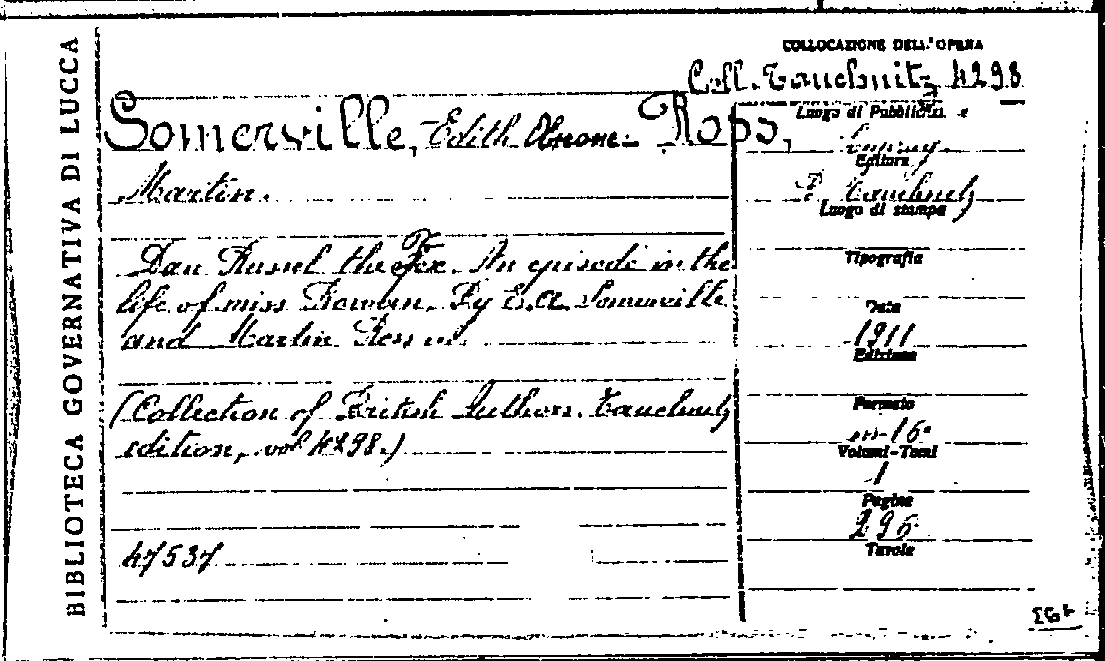 BIBLIOTECA GOVERNATIVA DI LUCCA
COLLOCAZIONE DELL'OPERA
Coll. Tauchnitz 4298
Somerville, Edith Œnone. Ross,
Martin.
Dan Russel the Fox. An episode in the
life of miss Rowan. By E. Œ. Somerville
and Martin Ross
(Collection of British Authors. Tauchnitz
edition, vol 4298.)
47537
Luogo di Pubblicaz. e
Editore
B. Tauchnitz
Luogo di stampa
Tipografia
Data
1911
Edizione
Formato
in-16°
Volumi-Tomi
1
Pagine
296
Tavole